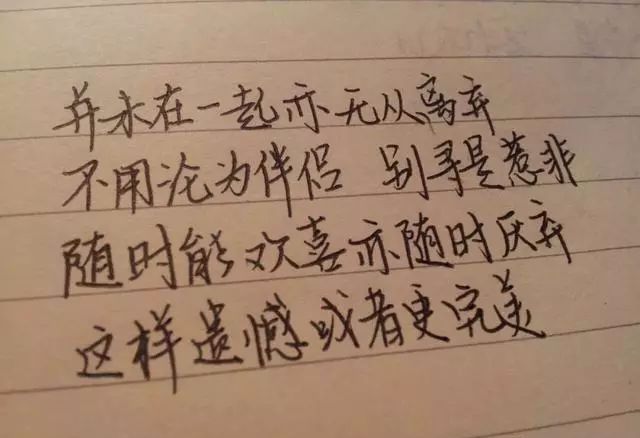 并未在一起亦无从离弃
不用沦为伴侣 别寻是惹非
随时能欢喜亦随时厌弃
这样遗憾或者更完美